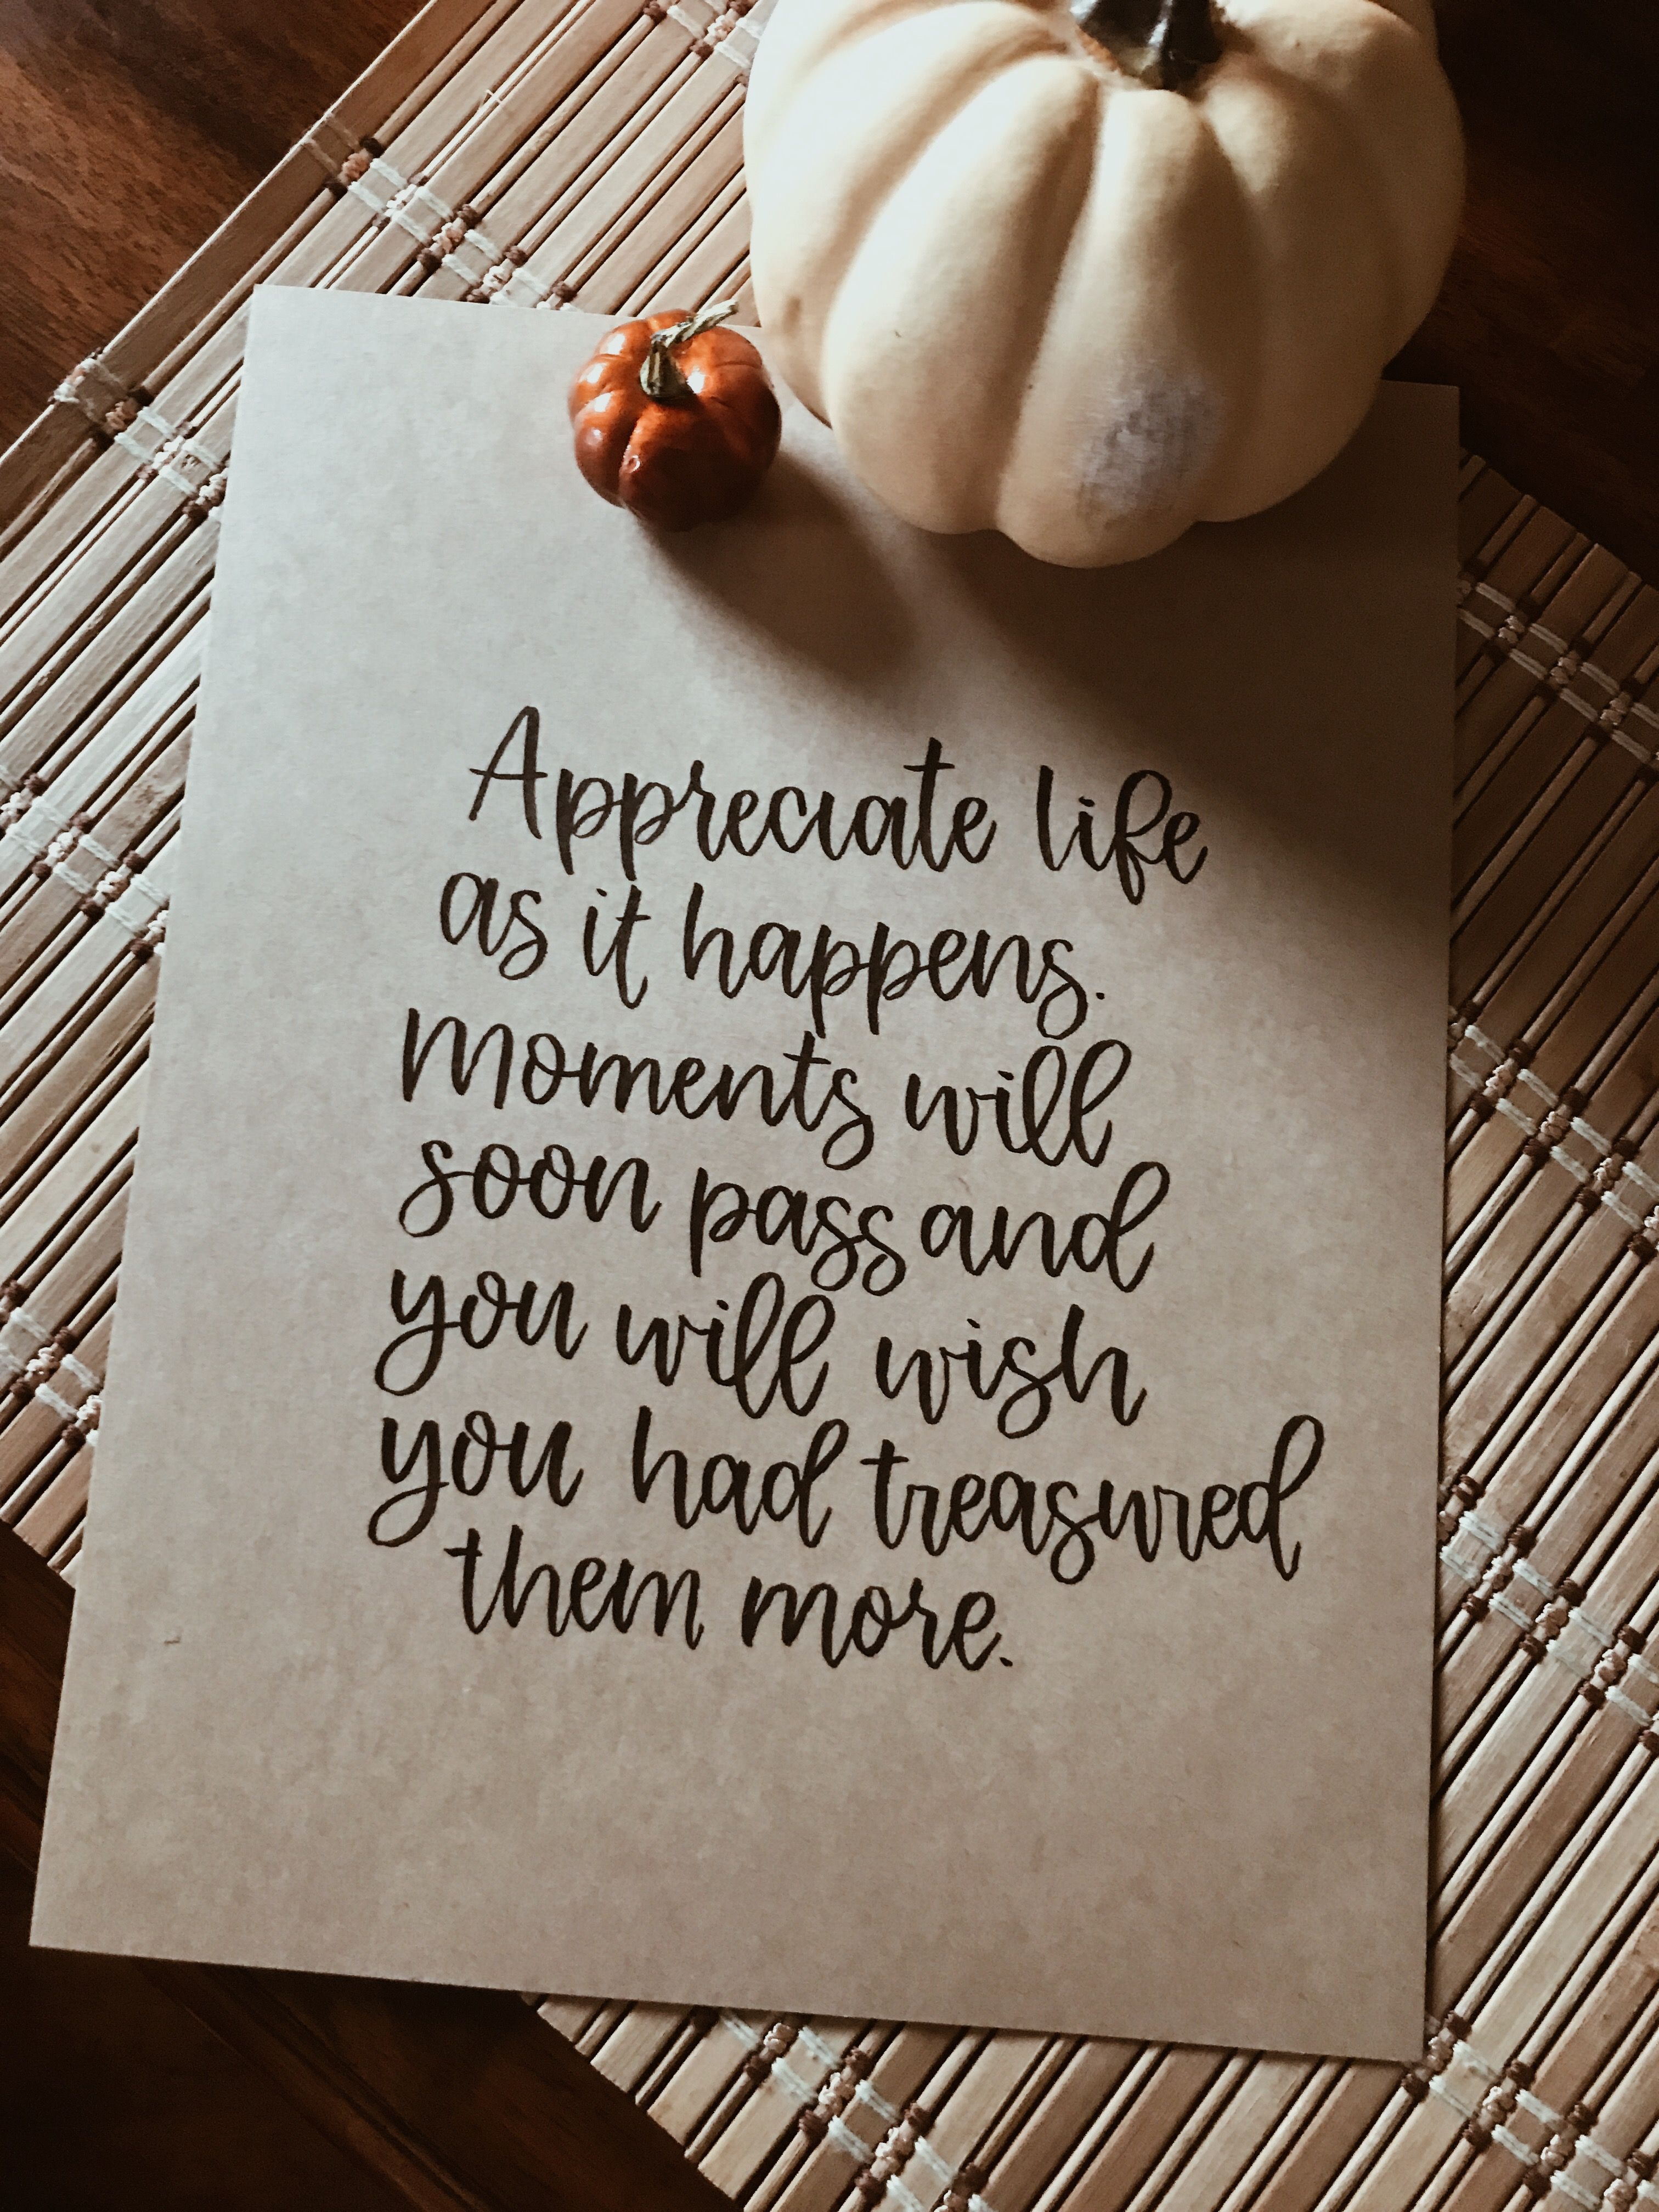 Appreciate life
as it happens.
Moments will
soon pass and
you will wish
you had treasured
them more.